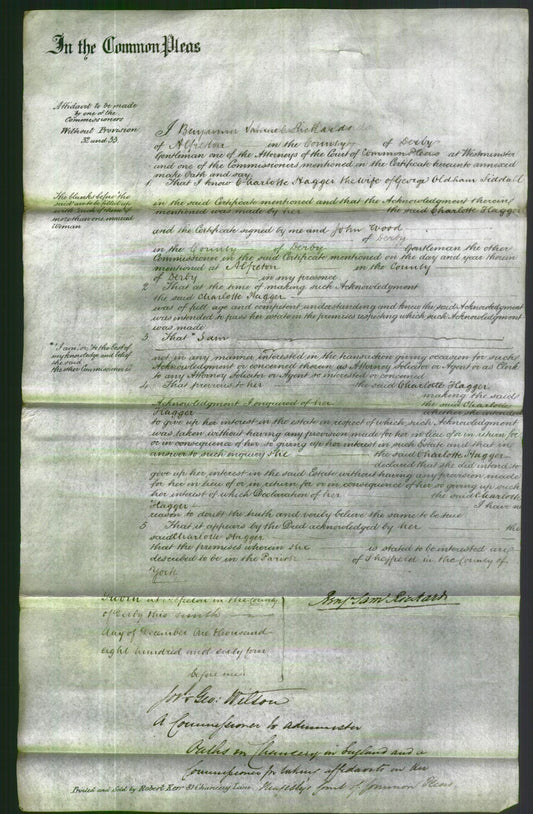 In the Common Pleas
Affidavit to be made
by one of the
Commissioners
Without Provision
32 and 33.
I Benjamin Samuel Rickards
of Alfreton in the County of Derby
Gentleman one of the Attorneys of the Court of Common Pleas at Westminster
and one of the Commissioners mentioned in the Certificate hereunto annexed
make Oath and say,
1. That I know Charlotte Hagger the wife of George Oldham Siddall
The blanks before the
said are to be filled up
with such of them if
more than one married
Woman
in the said Certificate mentioned and that the Acknowledgment therein
mentioned was made by her the said Charlotte Hagger
and the Certificate signed by me and John Wood
of Derby
in the County of Derby Gentleman the other
Commissioner in the said Certificate mentioned on the day and year therein
mentioned at Alfreton in the County
of Derby in my presence
2. That at the time of making such Acknowledgment
the said Charlotte Hagger
was of full age and competent understanding and knew the said Acknowledgment
was intended to pass her estate in the premises respecting which such Acknowledgment
was made
3. That "I am
"I am, or, To the best of
my knowledge and belief
the said
the other Commissioner is
not in any manner interested in the transaction giving occasion for such
Acknowledgment or concerned therein as Attorney Solicitor or Agent or as Clerk
to any Attorney Solicitor or Agent so interested or concerned
4. That previous to her the said Charlotte Hagger
making the said
Acknowledgment I enquired of her the said Charlotte
Hagger whether she intended
to give up her interest in the estate in respect of which such Acknowledgment
was taken without having any provision made for her in lieu of or in return for
or in consequence of her so giving up her interest in such Estate and that in
answer to such enquiry she the said Charlotte Hagger
declared that she did intend to
give up her interest in the said Estate without having any provision made
for her in lieu of or in return for or in consequence of her so giving up such
her interest of which Declaration of her the said Charlotte
Hagger I have no
reason to doubt the truth and verily believe the same to be true
5. That it appears by the Deed acknowledged by her the
said Charlotte Hagger
that the premises wherein she is stated to be interested are
described to be in the Parish of Sheffield in the County of
York
Sworn at Alfreton in the County
of Derby this ninth
day of December one thousand
eight hundred and sixty four
before me
Benj. Sam. Rickards
Geo: Wilson
A Commissioner to administer
Oaths in Chancery in England and a
Commissioner for taking affidavits in Her
Majesty's Court of Common Pleas
Printed and Sold by Robert Kerr 81 Chancery Lane